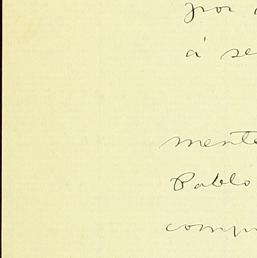 por
á se
mente
Pablo
comp